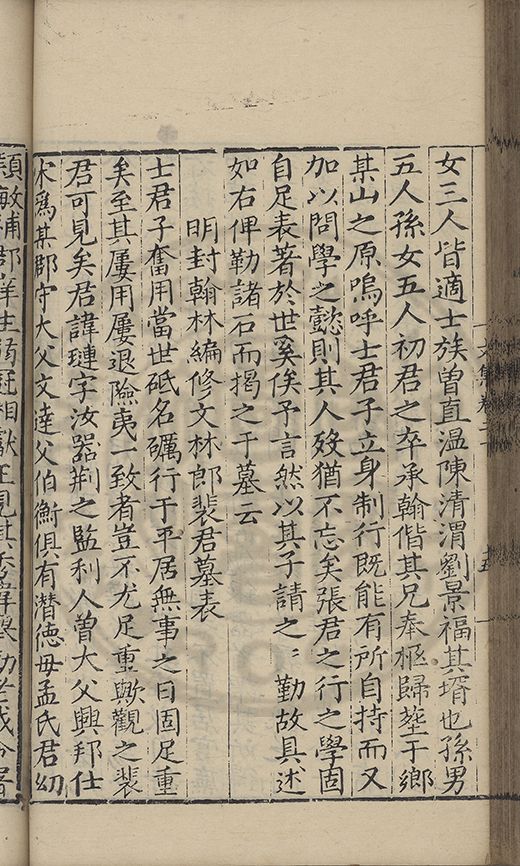 女三人皆適士族曾直溫陳清渭劉景福其壻也孫男
五人孫女五人初君之卒承翰偕其兄奉柩歸塟于鄉
某山之原嗚呼士君子立身制行既能有所自持而又
加以問學之懿則其人歿猶不忘矣張君之行之學固
自足表著於世奚俟予言然以其子請之〻勤故具述
如右俾勒諸石而揭之于墓云
明封翰林編修文林郎裴君墓表
士君子奮用當世砥名礪行于平居無事之日固足重
矣至其屢用屢退險夷一致者豈不尤足重歟觀之裴
君可見矣君諱璉字汝器荊之監利人曾大父興邦仕
宋爲某郡守大父文達父伯衡俱有潛德母孟氏君幼
穎敏補郡庠生弱冠相獻王見其